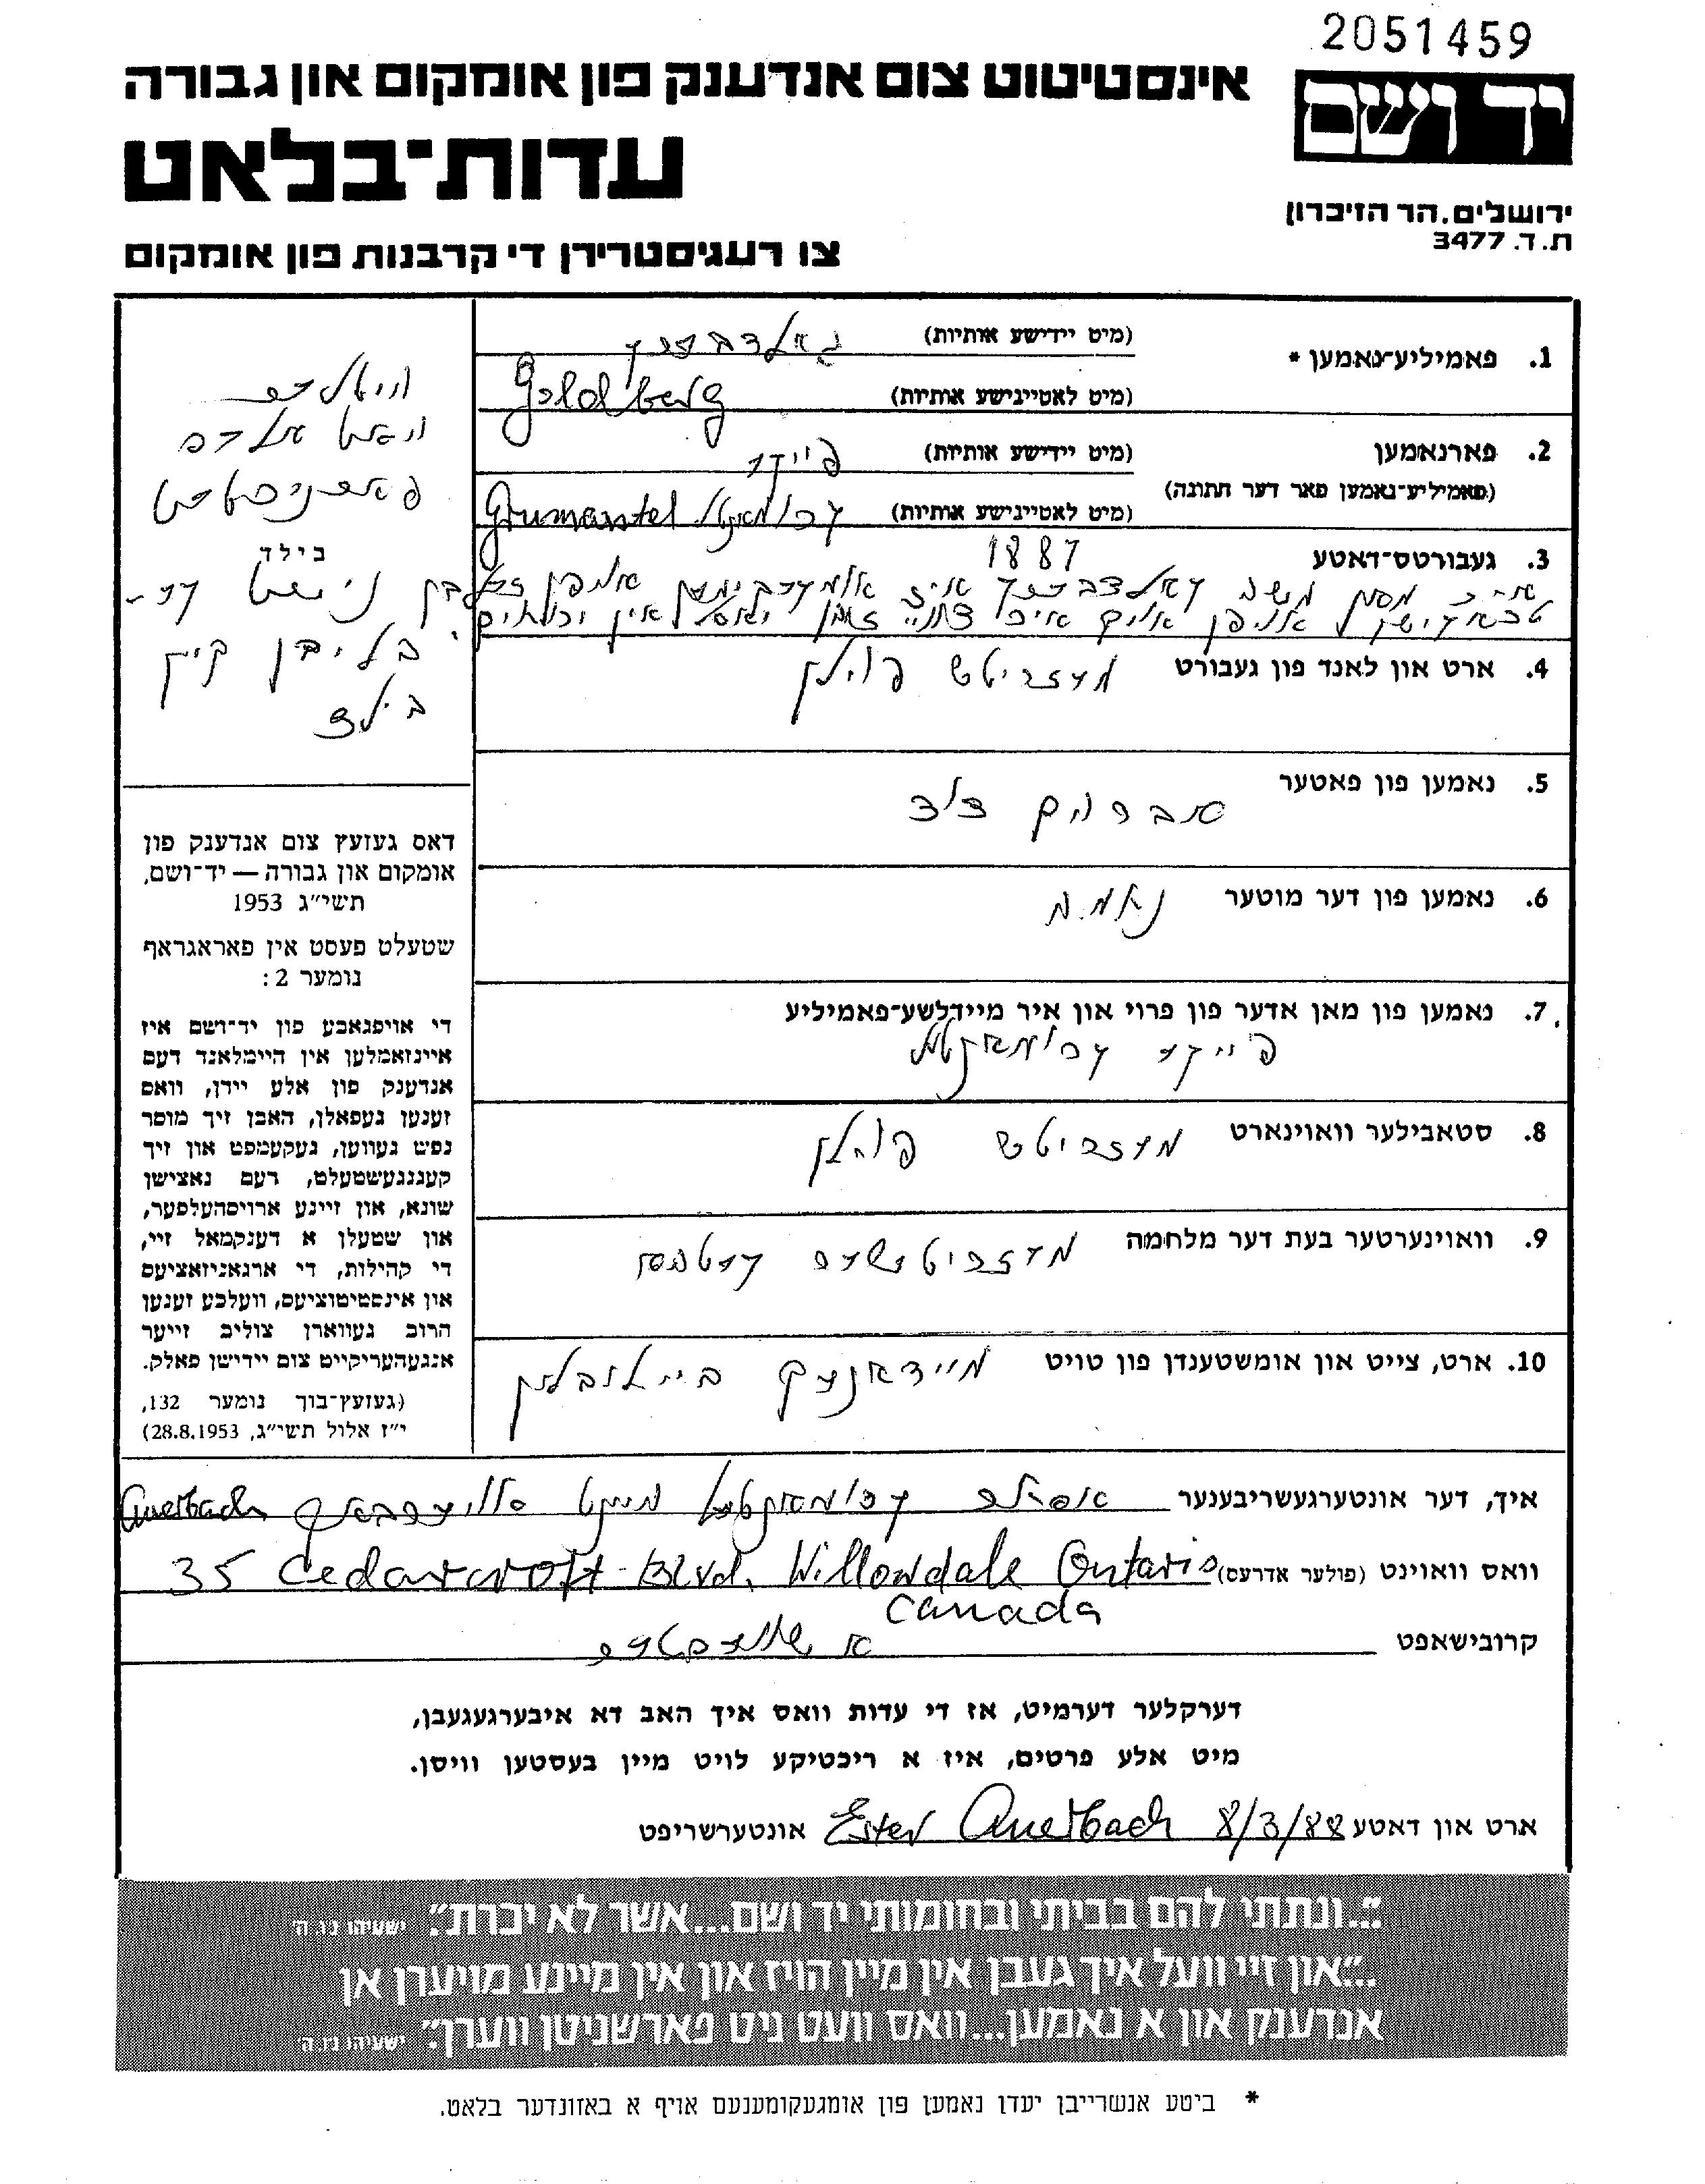 2051459
יד ושם
אינסטיטוט צום אנדענק פון אומקום און גבורה
עדות־בלאט
צו רעגיסטרירן די קרבנות פון אומקום
ירושלים. הר הזיכרון
ת.ד. 3477
1. פאמיליע־נאמען *
(מיט יידישע אותיות) גאלדבערג
(מיט לאטייינישע אותיות) Goldberg
2. פארנאמען
(מיט יידישע אותיות) פייגע
(פאמיליע־נאמען פאר דער חתונה)
(מיט לאטייינישע אותיות) Grumantel
3. געבורטס־דאטע 1887
4. ארט און לאנד פון געבורט מעזריטש פוילן
5. נאמען פון פאטער
6. נאמען פון דער מוטער
7. נאמען פון מאן אדער פון פרוי און איר מיידלשע־פאמיליע
פייגע גרומאנטל
8. סטאבילער וואוינארט מעזריטש פוילן
9. וואוינערטער בעת דער מלחמה מעזריטשער געטא
10. ארט, צייט און אומשטענדן פון טויט מיידאנעק ביי לובלין
בילד
בליבן קיין
בילד
דאס געזעץ צום אנדענק פון
אומקום און גבורה — יד־ושם,
תשי״ג 1953
שטעלט פעסט אין פאראגראף
נומער 2:
די אויפגאבע פון יד־ושם איז
איינזאמלען אין היימלאנד דעם
אנדענק פון אלע יידן, וואס
זענען געפאלן, האבן זיך מוסר
נפש געווען, געקעמפט און זיך
קעגנגעשטעלט, דעם נאצישן
שונא, און זיינע ארויסהעלפער,
און שטעלן א דענקמאל זיי,
די קהילות, די ארגאניזאציעס
און אינסטיטוציעס, וועלכע זענען
הרוב געווארן צוליב זייער
אנגעהעריקייט צום יידישן פאלק.
(געזעץ־בוך נומער 132,
י״ז אלול תשי״ג, 28.8.1953)
איך, דער אונטערגעשריבענער גרומאנטל Auerbach
וואס וואוינט (פולער אדרעס) 35 Cedarcroft Blvd. Willowdale Ontario
Canada
קרובישאפט א
דערקלער דערמיט, אז די עדות וואס איך האב דא איבערגעגעבן,
מיט אלע פרטים, איז א ריכטיקע לויט מיין בעסטען וויסן.
ארט און דאטע 8/3/88 אונטערשריפט Ester Auerbach
״...ונתתי להם בביתי ובחומותי יד ושם...אשר לא יכרת״. ישעיהו נו. ה׳
״...און זיי וועל איך געבן אין מיין הויז און אין מיינע מויערן אן
אנדענק און א נאמען...וואס וועט ניט פארשניטן ווערן״. ישעיהו נו. ה׳
* ביטע אנשרייבן יעדן נאמען פון אומגעקומענעם אויף א באזונדער בלאט.